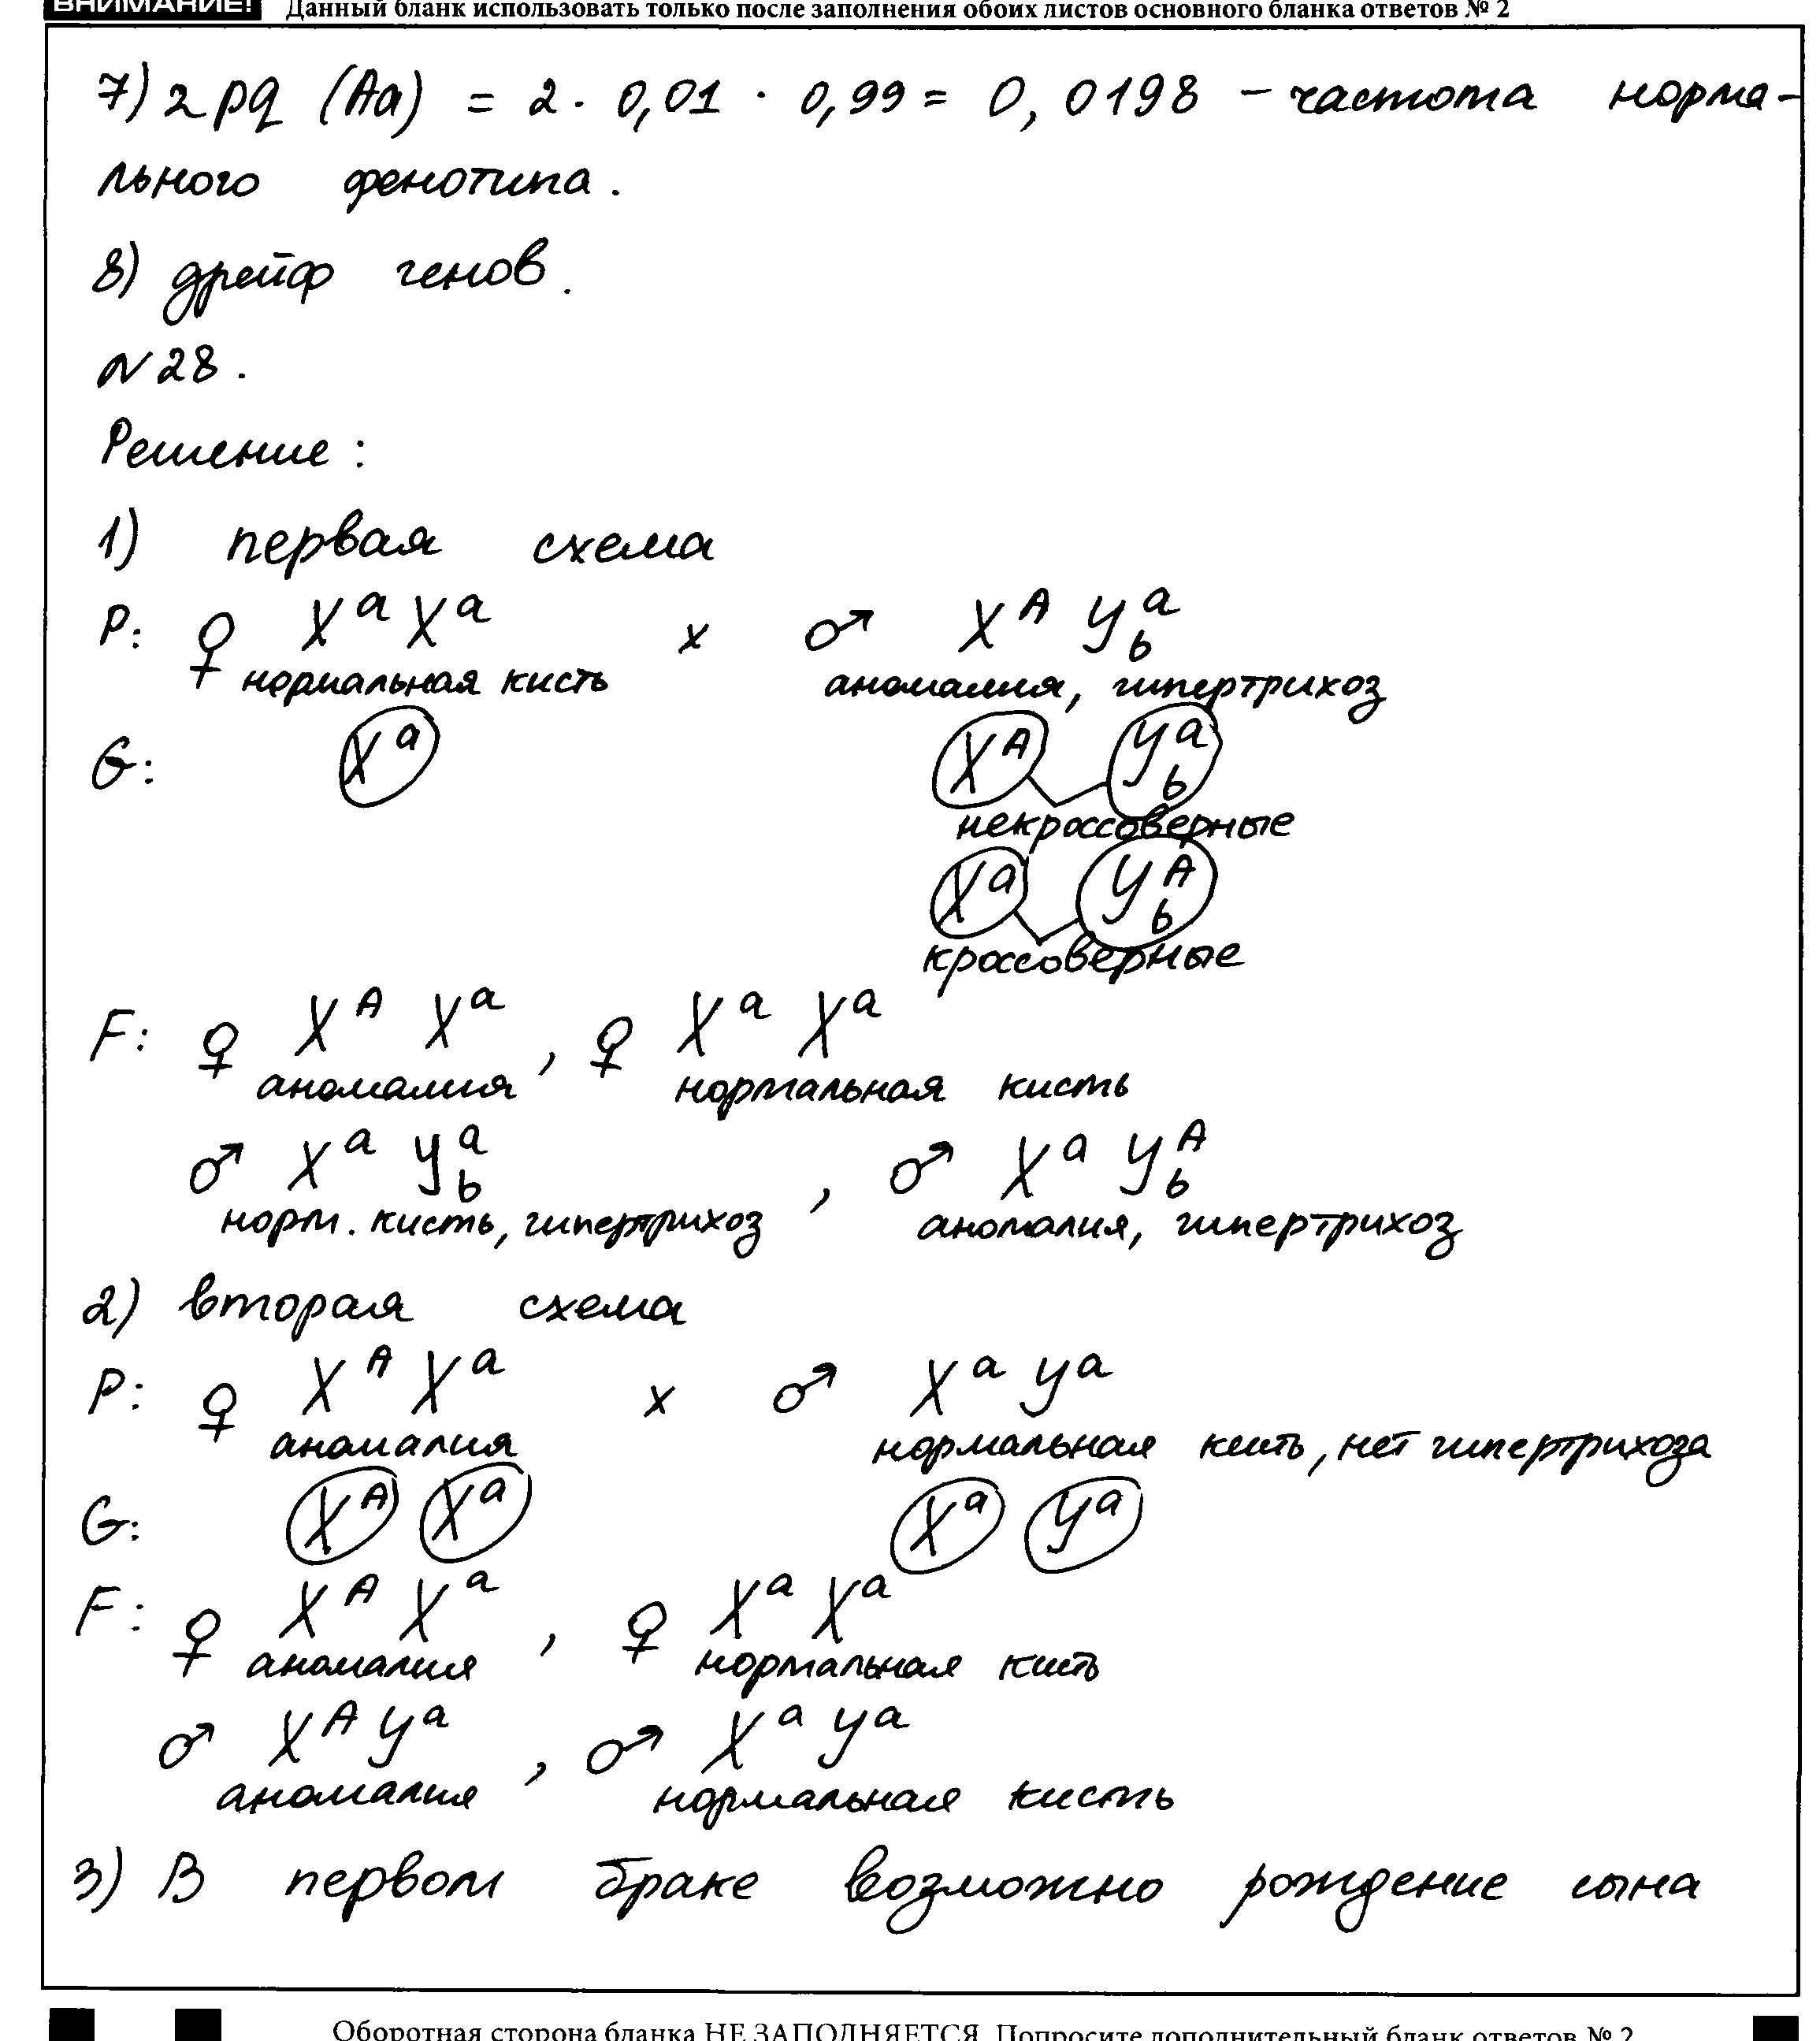 ВНИМАНИЕ! Данный бланк использовать только после заполнения обоих листов основного бланка ответов № 2
7) 2pq (Aa) = 2 · 0,01 · 0,99 = 0,0198 – частота норма-
льного фенотипа.
8) дрейф генов.
N28.
Решение:
1) первая схема
P: ♀ XᵃXᵃ x ♂ Xᴬ Yᵃb
нормальная кисть аномалия, гипертрихоз
G: Xᵃ Xᴬ Yᵃb
некроссоверные
Xᵃ Yᴬb
кроссоверные
F: ♀ Xᴬ Xᵃ, ♀ Xᵃ Xᵃ
аномалия нормальная кисть
♂ Xᵃ Yᵃb, ♂ Xᵃ Yᴬb
норм. кисть, гипертрихоз аномалия, гипертрихоз
2) вторая схема
P: ♀ Xᴬ Xᵃ x ♂ Xᵃ Yᵃ
аномалия нормальная кисть, нет гипертрихоза
G: Xᴬ Xᵃ Xᵃ Yᵃ
F: ♀ Xᴬ Xᵃ, ♀ Xᵃ Xᵃ
аномалия нормальная кисть
♂ Xᴬ Yᵃ, ♂ Xᵃ Yᵃ
аномалия нормальная кисть
3) В первом браке возможно рождение сына
Оборотная сторона бланка НЕ ЗАПОЛНЯЕТСЯ. Попросите дополнительный бланк ответов № 2